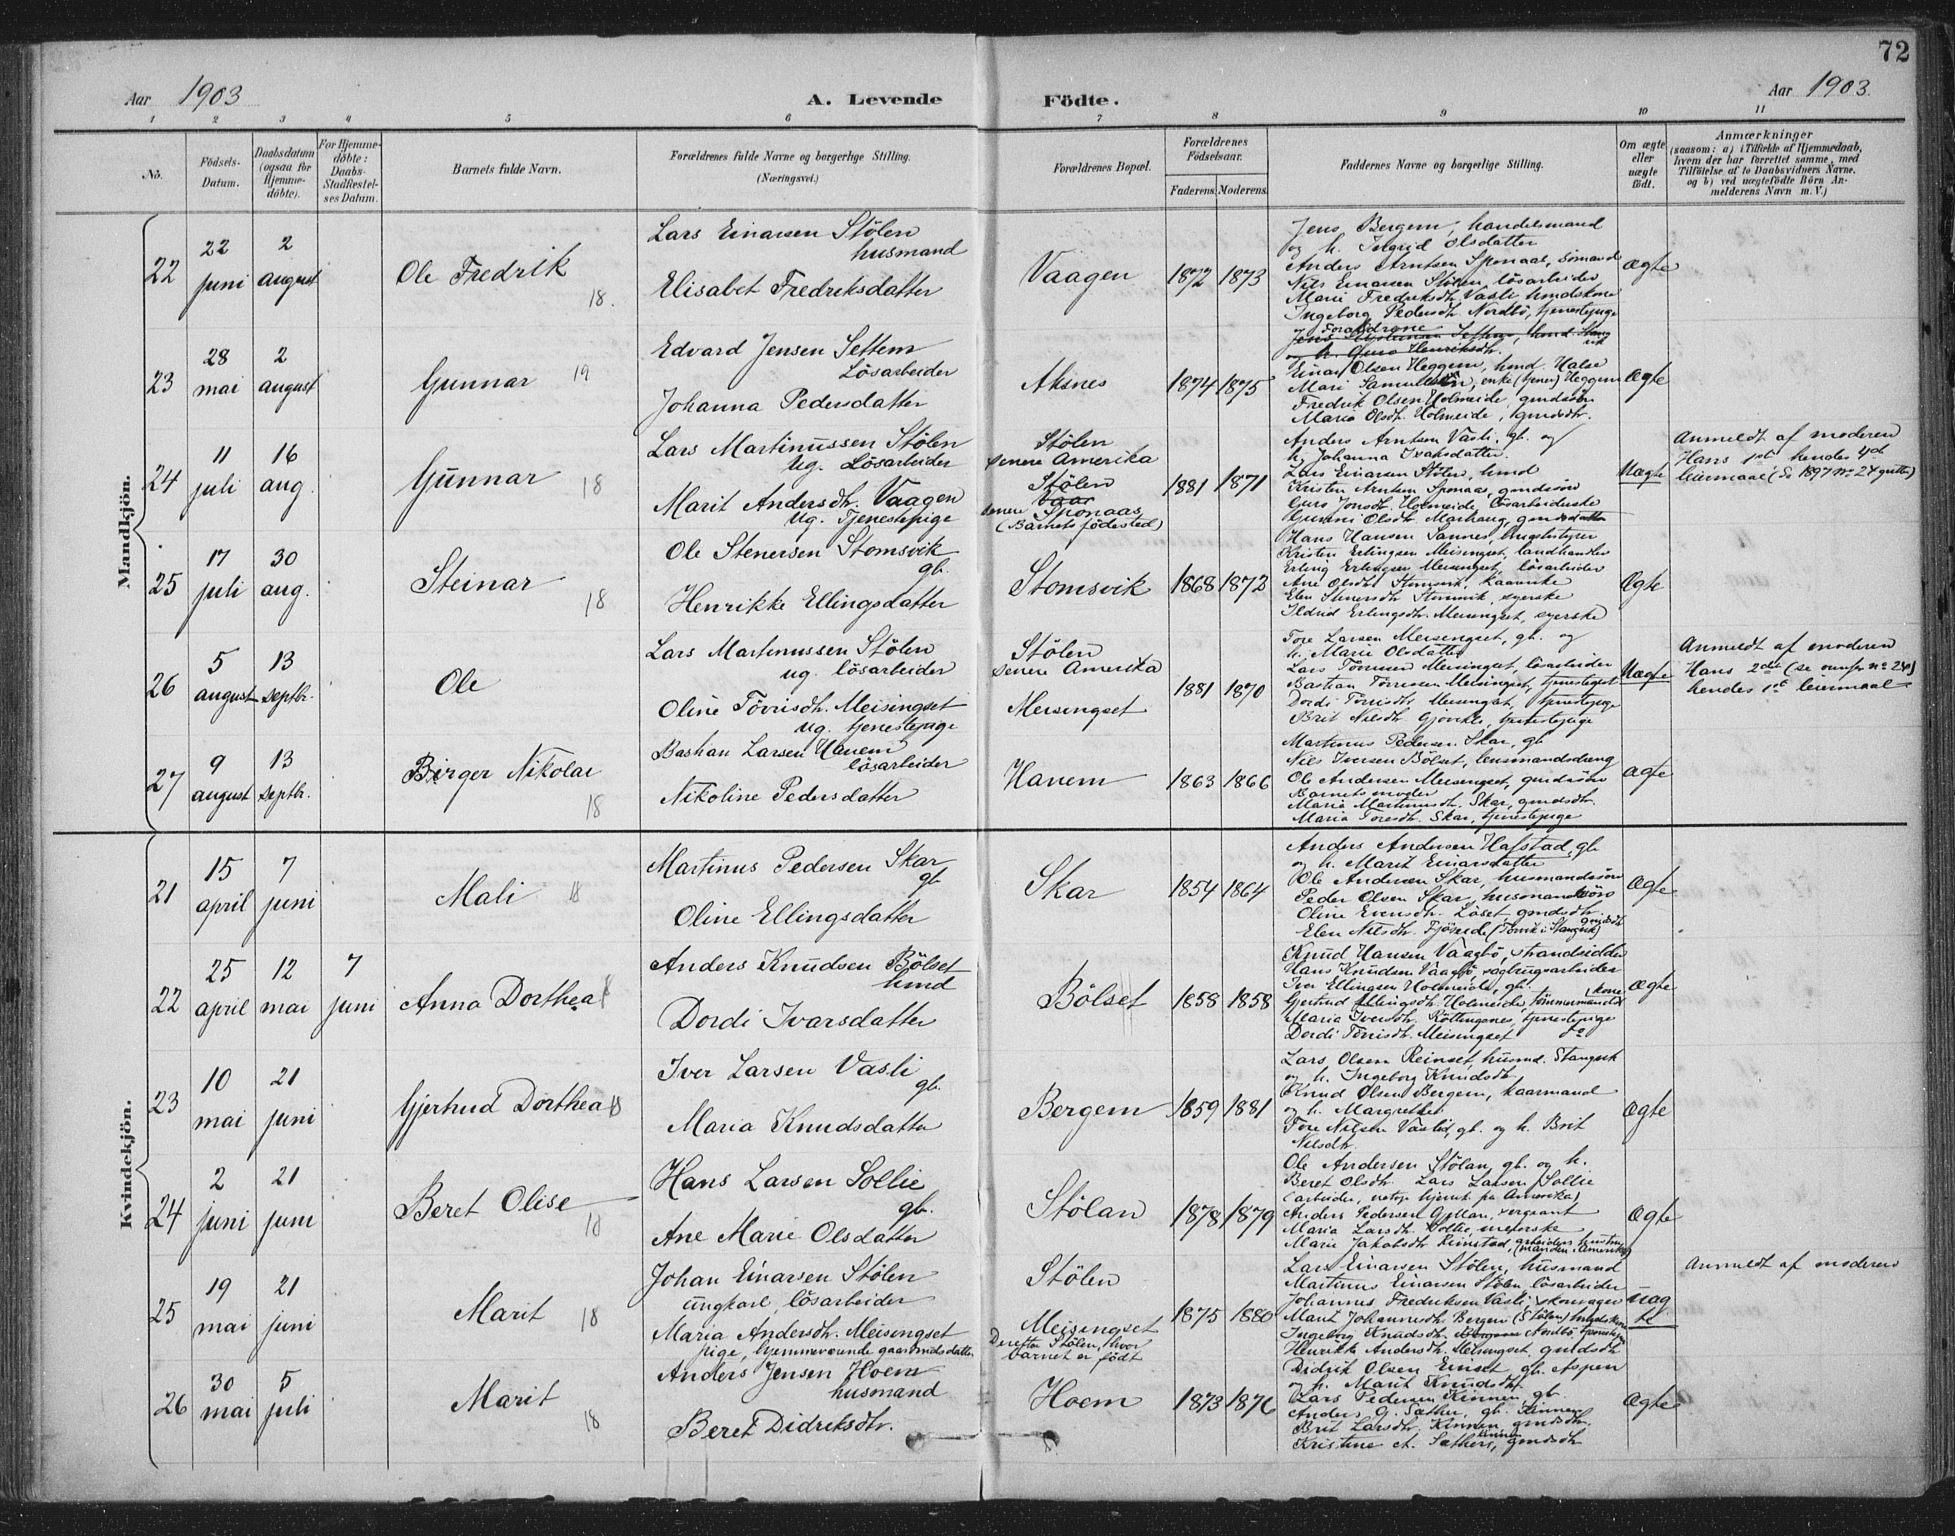 72
Aar 1903
A. Levende Födte.
Aar 1903.
1 2 3 4 5 6 7 8 9 10 11
No.
Födsels-Datum.
Daabsdatum (ogsaa for Hjemmedöbte).
For Hjemmedöbte: Daabs-Stadfæstelses Datum.
Barnets fulde Navn.
Forældrenes fulde Navne og borgerlige Stilling.
(Næringsvei.)
Forældrenes Bopæl.
Forældrenes Födselsaar.
Faderens. Moderens.
Faddernes Navne og borgerlige Stilling.
Om ægte eller uægte födt.
Anmærkninger
(saasom: a) i Tilfælde af Hjemmedaab, hvem der har forrettet samme, med Tilföielse af to Daabsvidners Navne, og b) ved uægtefödte Börn Anmelderens Navn m. V.)
Mandkjön.
22
22 juni
2 august
Ole Fredrik
18.
Lars Einarsen Stölen
husmand
Elisabet Fredriksdatter
Vaagen
1872 1873
Jens Bergem, handelsmand
og h. Ingrid Olsdatter
Anders Arntsen Sponaas, sömand
Nils Einarsen Stölen, lösarbeider
Marie Fredriksdtr. Vasli husmdskone
Ingeborg Pedersdtr. Nordbö, tjenestepige
Ægte
23
28 mai
2 august
Gunnar
19
Edvard Jensen Settem
Lösarbeider
Johanna Pedersdatter
Aksnes
1874 1875
Forældrene
og h. Guro Henriksdtr.
Einar Olsen Heggem, husmd. Halse
Mari Samuelsen, enke (tjener) Heggem
Fredrik Olsen Holmeide, gmdssön
Maria Olsdtr. Holmeide, gmdsdtr.
Ægte
24
11 juli
16 aug.
Gunnar
18
Lars Martinussen Stölen
ug. Lösarbeider
Marit Andersdtr. Vaagen
ug. Tjenestepige
Stölen
senere Amerika
Stölen
senere Sponaas
(Barnets födested)
1881 1871
Anders Arntsen Vasli, gb. og
h. Johanna Ivarsdatter
Lars Einarsen Stölen, husmd
Kristen Arntsen Sponaas, gmdssön
Guro Jonsdtr. Holmeide, Lösarbeiderske
Gunni Olsdtr. Marhaug, gmdsdatter
Uægte
Anmeldt af moderen
Hans 1ste hendes 4de
leiermaal (Se 1897 no 24 gutter)
25
17 juli
30 aug.
Steinar
18
Ole Stenersen Stomsvik
gb.
Henrikke Ellingsdatter
Stomsvik
1868 1873
Hans Hansen Sannes,
Kristen Erlingsen Meisingset, landhandler
Erling Erlingsen Meisingset, lösarbeider
Ane Olsdtr. Stomsvik, kaarenke
Elen Stenersdtr. Stomsvik, syerske
Ildrid Erlingsdtr. Meisingset, syerske
Ægte
26
5 august
13 septbr.
Ole
Lars Martinussen Stölen
ug. lösarbeider
Oline Törrisdtr. Meisingset
ug. tjenestepige
Stölen
senere Amerika
Meisingset
1881 1870
Tore Larsen Meisingset, gb. og
h. Marie Olsdatter
Lars Törresen Meisingset, lösarbeider
Bastian Törresen Meisingset, tjenestegut
Dordi Törrisdtr. Meisingset, tjenestepige
Brit Nilsdtr. Gjövikli, tjenestepige
Uægte
Anmeldt af moderen
Hans 2det (se ovenfor no 24)
hendes 1ste leiermaal
27
9 august
13 septbr.
Birger Nikolai
18
Bastian Larsen Hanem
lösarbeider
Nikoline Pedersdatter
Hanem
1863 1866
Martinus Pedersen Skar, gb
Nils Iversen Bölset, lensmandsdreng
Ole Andersen Meisingset, gmdssön
Barnets moder
Maria Martinusdtr. Skar, gmdsdtr.
Maria Toresdtr. Skar, tjenestepige
Ægte
Kvindekjön.
21
15 april
7 juni
Mali
18
Martinus Pedersen Skar
gb
Oline Ellingsdatter
Skar
1854 1864
Anders Andersen Hafstad, gb
og h. Marit Einarsdatter
Ole Andersen Skar, husmandssön
Peder Olsen Skar, husmandssön
Oline Evensdtr. Löset, gmdsdtr.
Elen Nilsdtr. Fjöseide (Tomvik i Stangvik) gmdsdtr
Ægte
22
25 april
12 mai
7 juni
Anna Dorthea
18
Anders Knudsen Bölset
husmd
Dordi Ivarsdatter
Bölset
1858 1858
Knud Hansen Vaagbö, strandsidder
Hans Knudsen Vaagbö, sagbrugsarbeider
Iver Ellingsen Holmeide, gb.
Gjertrud Ellingsdtr. Holmeide, tömmermands kone
Maria Iversdtr. Röttingsnes, tjenestepige
Dordi Törrisdtr. Meisingset do
Ægte
23
10 mai
21 juni
Gjertrud Dorthea
18
Iver Larsen Vasli
gb.
Maria Knudsdatter
Bergem
1859 1881
Lars Olsen Reinset, husmd. Stangvik
og h. Ingeborg Knudsdtr.
Knud Olsen Bergem, kaarmand
og h. Margrethe
Tore Nilsen Vaslid, gb. og h. Brit
Nilsdtr.
Ægte
24
2 juni
21 juni
Beret Olise
18
Hans Larsen Sollie
gb.
Ane Marie Olsdatter
Stölan
1878 1879
Ole Andersen Stölan, gb. og h.
Beret Olsdtr. Lars Larsen Sollie
(arbeider, netop hjemt fra Amerika)
Anders Pedersen, sergeant
Maria Larsdtr. Sollie, meierske
Marie Jakobsdtr. Rimstad, arbeiders hustru (manden i Amerika)
Ægte
25
19 mai
21 juni
Marit
18
Johan Einarsen Stölen
ungkarl, lösarbeider
Maria Andersdtr. Meisingset
pige, hjemmeværende gaardmdsdatter
Stölen
Meisingset
Derefter Stölen, hvor
barnet er födt
1875 1880
Lars Einarsen Stölen, husmand
Martinus Einarsen Stölen, lösarbeider
Johannes Fredriksen Vasli, skomager
Marit Johannesdtr. Bergem (Stölen) husmdskone
Ingeborg Knudsdtr. Nordbö, tjenestepige
Henrikke Andersdtr. Meisingset, gmdsdtr
uægte
Anmeldt af moderen
26
30 mai
5 juli
Marit
18
Anders Jensen Hoem
husmand
Beret Didriksdtr.
Hoem
1873 1876
Didrik Olsen Einset, gb. Aspen
og h. Marit Knudsdtr.
Lars Pedersen Kinnen gb.
Anders G. Sæther, gb. Kinnen
Brit Larsdtr. Kinnen, gmdsdtr.
Kristine A. Sæther, Kinnen, gmdsdtr
Ægte